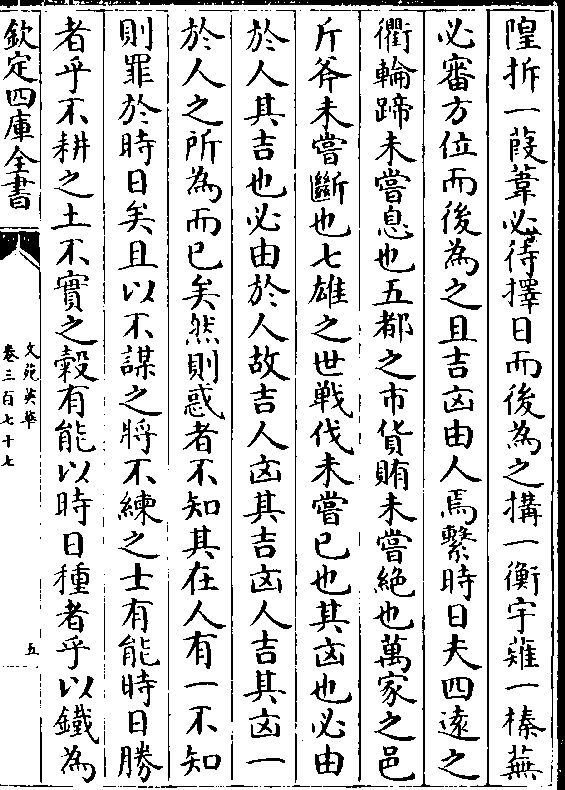 隍拆一葭葦必待擇日而後為之搆一衡宇薙一榛蕪
必審方位而後為之且吉凶由人焉繫時日夫四逺之
衢輪蹄未嘗息也五都之市貨賄未嘗絶也萬家之邑
斤斧未嘗斷也七雄之世戰伐未嘗已也其凶也必由
於人其吉也必由於人故吉人凶其吉凶人吉其凶一
於人之所為而已矣然則惑者不知其在人有一不知
則罪於時日矣且以不謀之將不練之士有能時日勝
者乎不耕之土不實之穀有能以時日種者乎以鐵為
欽定四庫全書
文苑英華
卷三百七十七
五